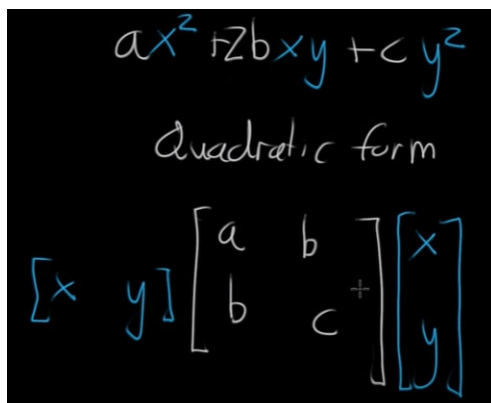 ax² +2bxy + cy²
Quadratic form
[x y] [a b] [x]
[b c] [y]